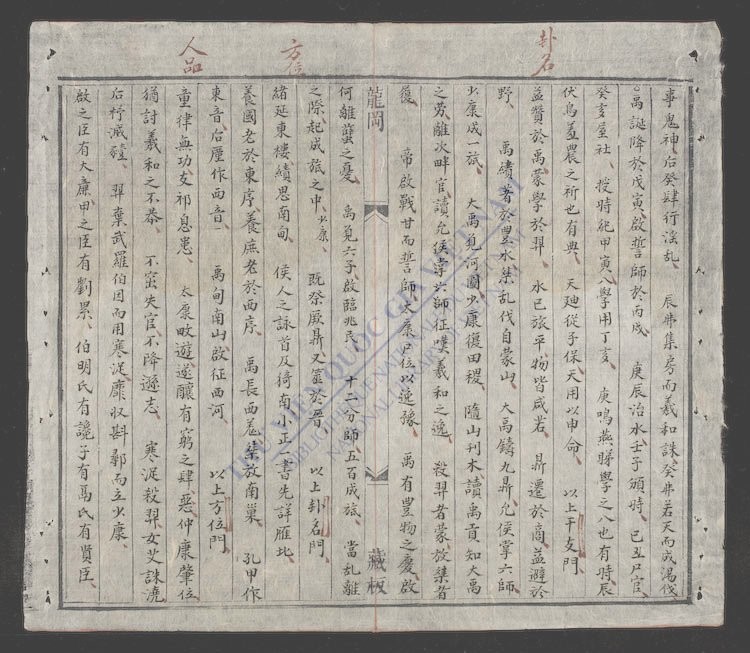 卦名
事鬼神、后癸肆行淫乱、　辰弗集房而羲和誅、癸弗若天而成湯伐、
禹誕降於戊寅、啟誓師於丙戌　庚辰治水、壬子頒時、　已丑尸官、
癸亥屋社、　授時紀甲寅、入學用丁亥、　庚鳴燕睇學之八也有時、辰
伏鳥羞農之祈也有典、　天廸從子保、天用以申命、　以上干支門、
益贊於禹、蒙學於羿、　水已旅平、物皆咸若、　鼎遷於商、益避於
野、　禹績著於豐水、桀乱伐自蒙山、　大禹鑄九鼎、允侯掌六師、
少康成一旅、　大禹見河圖、少康復田稷、　隨山刊木讀禹貢、知大禹
之勞、離次畔官讀允侯、掌六師征嘆羲和之逸、　殺羿者蒙、放桀者
履、　帝啟戰甘而誓師、太康尸位以逸豫、　禹有豐物之慶、啟
龍岡
藏板
何離蠥之憂、　禹見六子、啟臨兆民、　十二分師、五百成旅、　當乱離
之際、起成旅之中、少康、　既祭厥鼎、又筮於晉、　以上卦名門、
方位
緒延東樓、績思南甸、　侯人之詠首及猗南、小正一書先詳雁北、
養國老於東序、養庶老於西序、　禹長西羌、桀放南巢、　孔甲作
東音、后厘作西音、　禹甸南山、啟征西河、　以上方位門、
人品
童律無功、支祁息患、　太康畋遊遂釀有窮之肆惡、仲康肇位
猶討羲和之不恭、　不窋失官、不降遜志、　寒浞殺羿、女艾誅澆、
后杼滅豷、　羿棄武羅伯因而用寒浞、靡收斟鄩而立少康、
啟之臣有大廉、甲之臣有劉累、　伯明氏有讒子、有鬲氏有賢臣、
THƯ VIỆN QUỐC GIA VIỆT NAM
BIBLIOTHÈQUE NATIONALE DU VIETNAM
NATIONAL LIBRARY OF VIETNAM